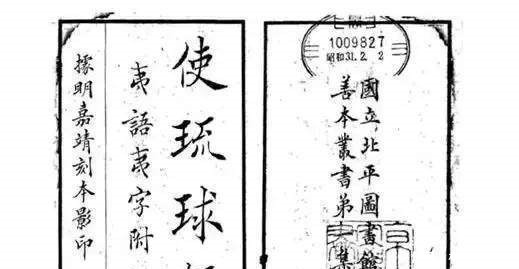 1009827
昭和31. 2. 2
國立北平圖書館
善本叢書第集
使琉球
夷語夷字附
據明嘉靖刻本影印